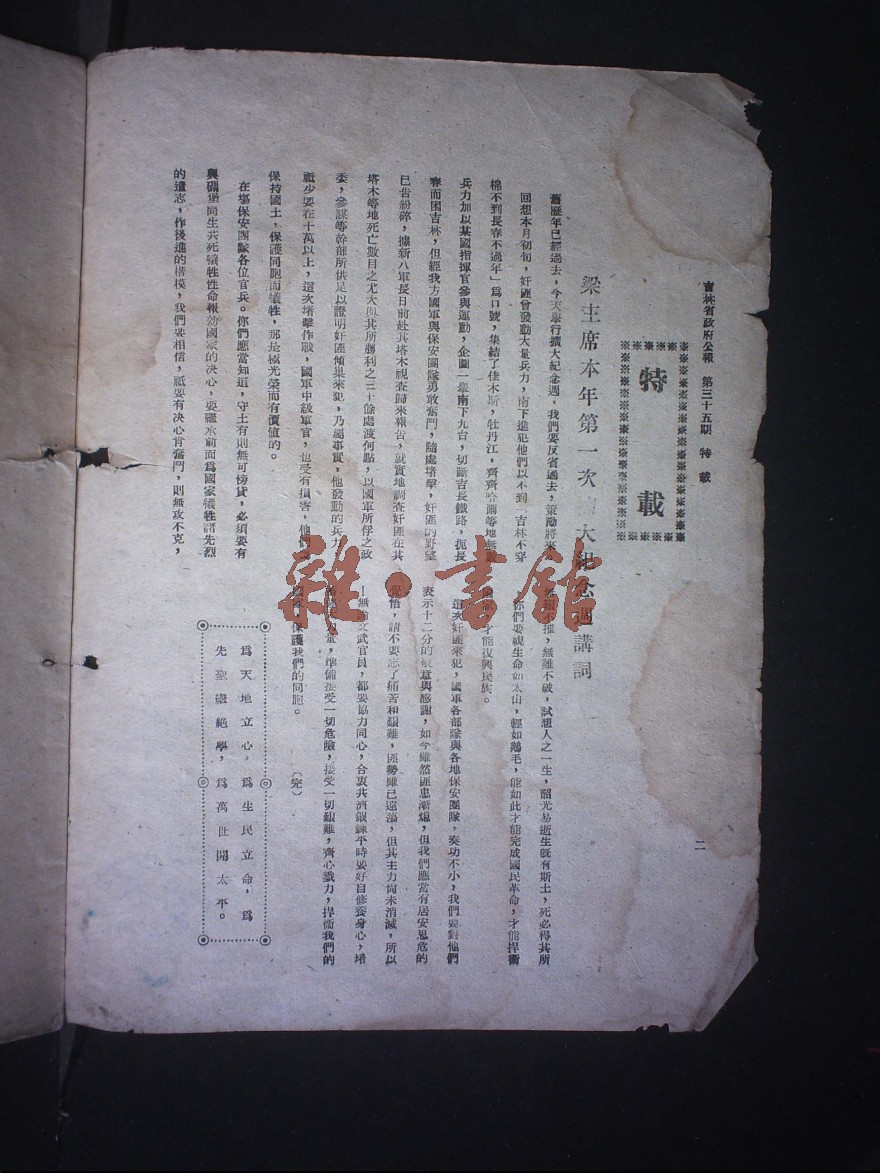 吉林省政府公報 第三十五期 特載
二
特載
梁主席本年第一次大紀念週講詞
舊歷年已經過去,今天舉行擴大紀念週,我們要反省過去,策勵將來。
回想本月初旬,奸匪曾發動大量兵力,南下進犯他們以不到「吉林不穿
棉不到長春不過年」爲口號,集結了佳木斯,牡丹江,齊齊哈爾等地無數
兵力加以某國指揮官參與運動,企圖一舉南下九台,切斷吉長鐵路,扼長
春而困吉林,但經我方國軍與保安團隊勇敢奮鬥,隨處堵擊,奸匪的野望
已告紛碎,據新八軍長日前赴其塔木視查歸來報告,就實地調查奸匪在其
塔木等地死亡數目之尤大與其所勝利之三十餘處渡何點,以國軍所俘之政
委,參謀等幹部所供足以證明奸匪傾巢來犯,乃屬事實,他發動的兵力
祗少要在十萬以上,這次堵擊作戰,國軍中級軍官,也受有損害,他們
保持國土,保護同胞而犧牲,那是極光榮而有價值的。
在塲保安團隊各位官兵。你們應當知道,守土有則無可傍貸,必須要有
與碉堡同生共死犧牲性命報効國家的決心,要繼承前面爲國家犧牲諸先烈
的遺志,作後進的楷模,我們要相信,祗要有決心肯奮鬥,則無攻不克,
不摧,無難不破,試想人之一生,韶光易逝生旣有斯土,死必得其所
你們要視生命如太山,輕如鵝毛,能如此才能完成國民革命,才能捍衞
才能復興民族。
這次奸匪來犯,國軍各部隊與各地保安團隊,奏功不小,我們要對他們
表示十二分的敬意與感謝,如今雖然匪患漸熄,但我們應當有居安思危的
覺悟,請不要忘了痛苦和艱難,匪勢雖已遠蕩,但其主力尙未消滅,所以
無論文武官員,都要協力同心,合衷共濟鍛鍊平時要好自修養身心,培
力量,準備接受一切危險,接受一切艱難,齊心戮力,捍衞我們的
保護我們的同胞。 (完)
爲天地立心,爲生民立命,爲
先聖繼絕學,爲萬世開太平。
雜·書館